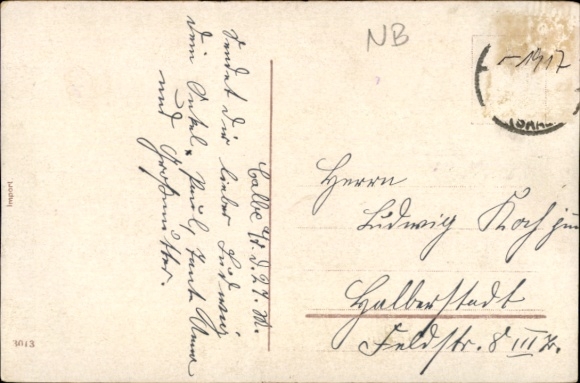 NB
1917
Calbe a/S. d. 27. III.
Sendet dir lieber Ludwig
dein Onkel Paul, Tante Anna
und Großmutter.
Herrn
Ludwig Koch jun
Halberstadt
Feldstr. 8 III Tr.
Import
3013